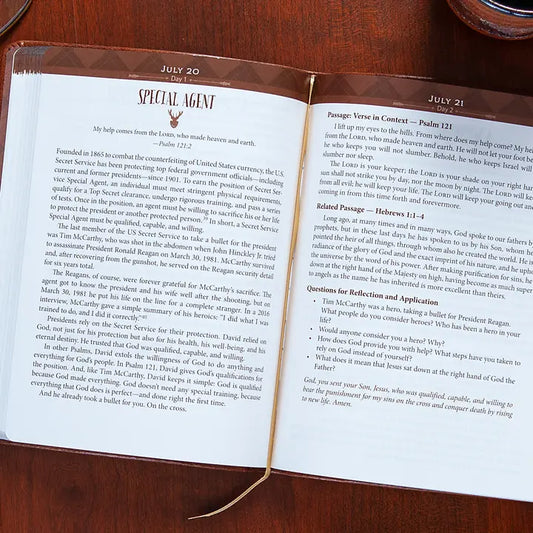 JULY 20
Day 1
SPECIAL AGENT
My help comes from the LORD, who made heaven and earth.
—Psalm 121:2
Founded in 1865 to combat the counterfeiting of United States currency, the U.S.
Secret Service has been protecting top federal government officials—including
current and former presidents—since 1901. To earn the position of Secret Ser-
vice Special Agent, an individual must meet stringent physical requirements,
qualify for a Top Secret clearance, undergo rigorous training, and pass a series
of tests. Once in the position, an agent must be willing to sacrifice his or her life
to protect the president or another protected person. In short, a Secret Service
Special Agent must be qualified, capable, and willing.
The last member of the US Secret Service to take a bullet for the president
was Tim McCarthy, who was shot in the abdomen when John Hinckley Jr. tried
to assassinate President Ronald Reagan on March 30, 1981. McCarthy survived
and, after recovering from the gunshot, he served on the Reagan security detail
for six years total.
The Reagans, of course, were forever grateful for McCarthy's sacrifice. The
agent got to know the president and his wife well after the shooting, but on
March 30, 1981 he put his life on the line for a complete stranger. In a 2016
interview, McCarthy gave a simple summary of his heroics: "I did what I was
trained to do, and I did it correctly."
Presidents rely on the Secret Service for their protection. David relied on
God, not just for his protection but also for his health, his well-being, and his
eternal destiny. He trusted that God was qualified, capable, and willing.
In other Psalms, David extols the willingness of God to do anything and
everything for God's people. In Psalm 121, David gives God's qualifications for
the position. And, like Tim McCarthy, David keeps it simple: God is qualified
because God made everything. God doesn't need any special training, because
everything that God does is perfect—and done right the first time.
And he already took a bullet for you. On the cross.
JULY 21
Day 2
Passage: Verse in Context — Psalm 121
I lift up my eyes to the hills. From where does my help come? My help
from the LORD, who made heaven and earth. He will not let your foot be
he who keeps you will not slumber. Behold, he who keeps Israel will
slumber nor sleep.
The LORD is your keeper; the LORD is your shade on your right han
sun shall not strike you by day, nor the moon by night. The LORD will keep
from all evil; he will keep your life. The LORD will keep your going out and
coming in from this time forth and forevermore.
Related Passage — Hebrews 1:1–4
Long ago, at many times and in many ways, God spoke to our fathers by
prophets, but in these last days he has spoken to us by his Son, whom he
pointed the heir of all things, through whom also he created the world. He is
radiance of the glory of God and the exact imprint of his nature, and he uph
the universe by the word of his power. After making purification for sins, he
down at the right hand of the Majesty on high, having become as much super
to angels as the name he has inherited is more excellent than theirs.
Questions for Reflection and Application
• Tim McCarthy was a hero, taking a bullet for President Reagan.
What people do you consider heroes? Who has been a hero in your
life?
• Would anyone consider you a hero? Why?
• How does God provide you with help? What steps have you taken to
rely on God instead of yourself?
• What does it mean that Jesus sat down at the right hand of God the
Father?
God, you sent your Son, Jesus, who was qualified, capable, and willing to
bear the punishment for my sins on the cross and conquer death by rising
to new life. Amen.